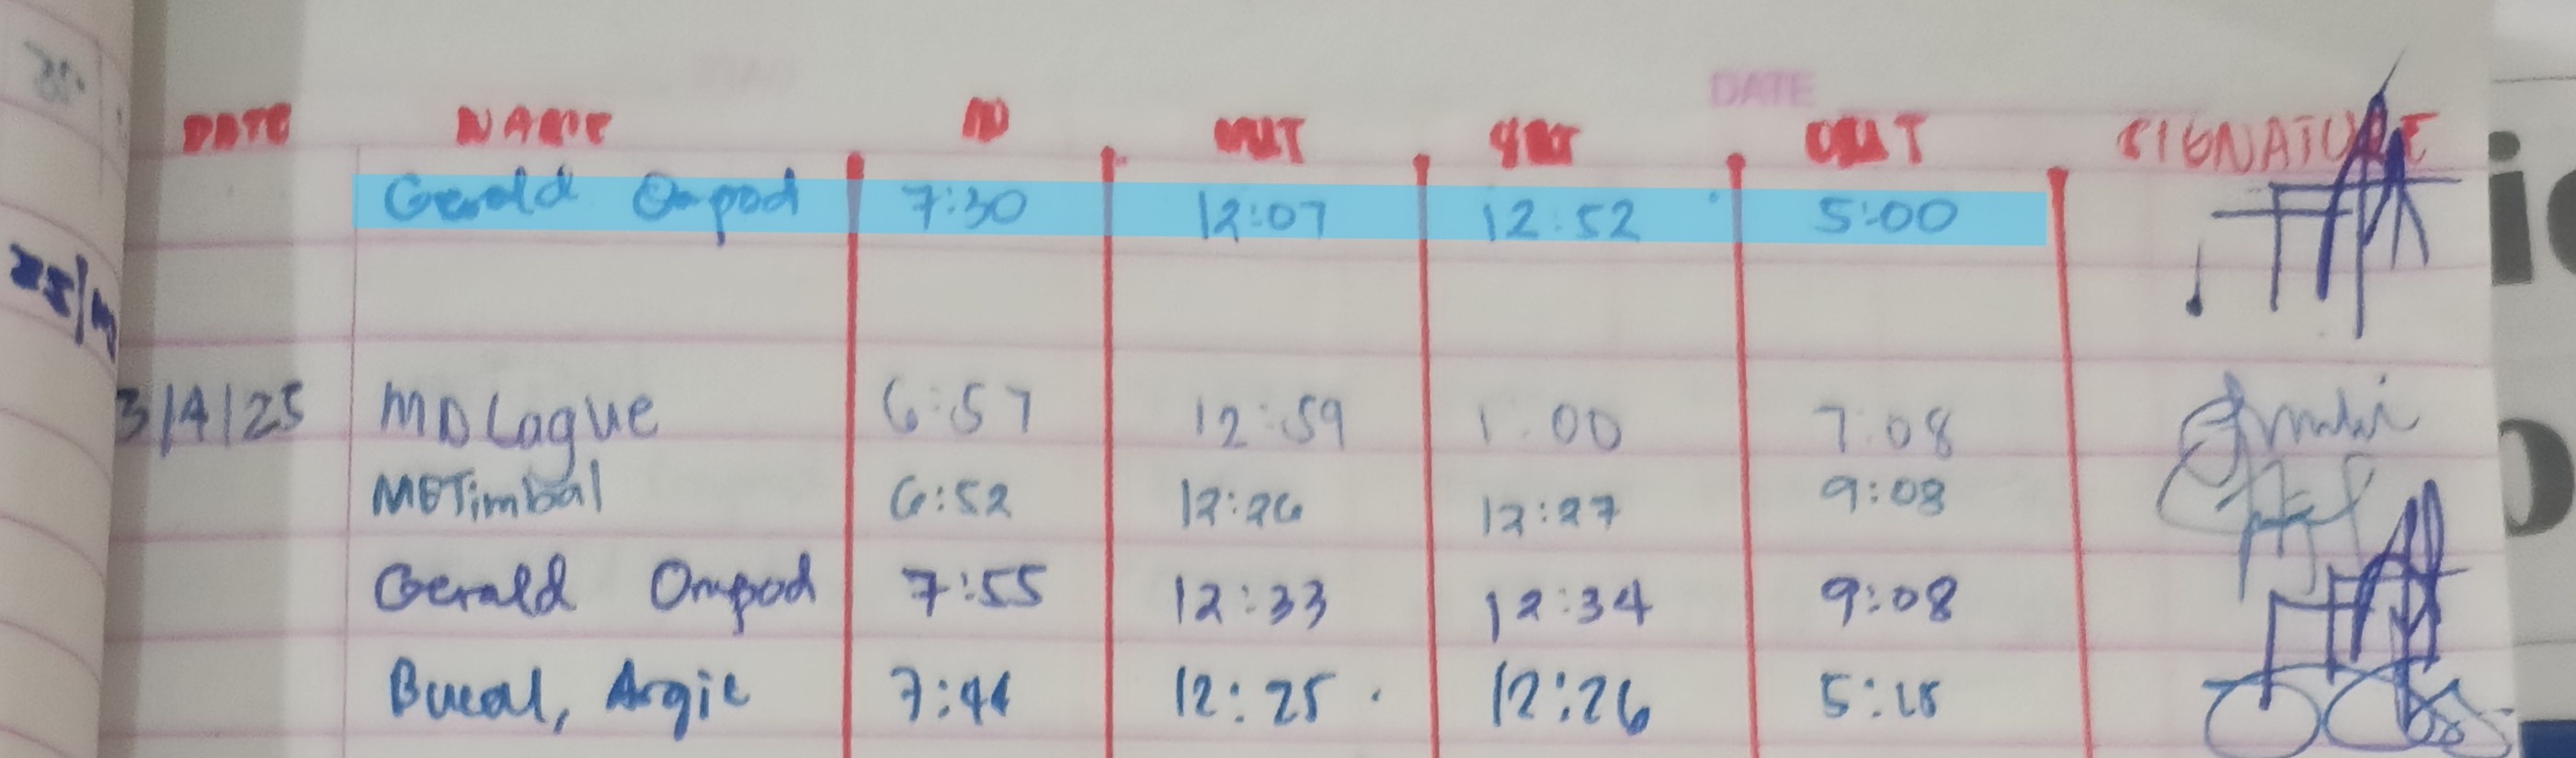 DATE
DATE NAME IN OUT IN OUT SIGNATURE
Gerald Ompod 7:30 12:07 12:52 5:00
3/4/25 MDLague 6:57 12:59 1:00 7:08
METimbal 6:52 12:26 12:27 9:08
Gerald Ompod 7:55 12:33 12:34 9:08
Bucal, Argie 7:44 12:25 12:26 5:15